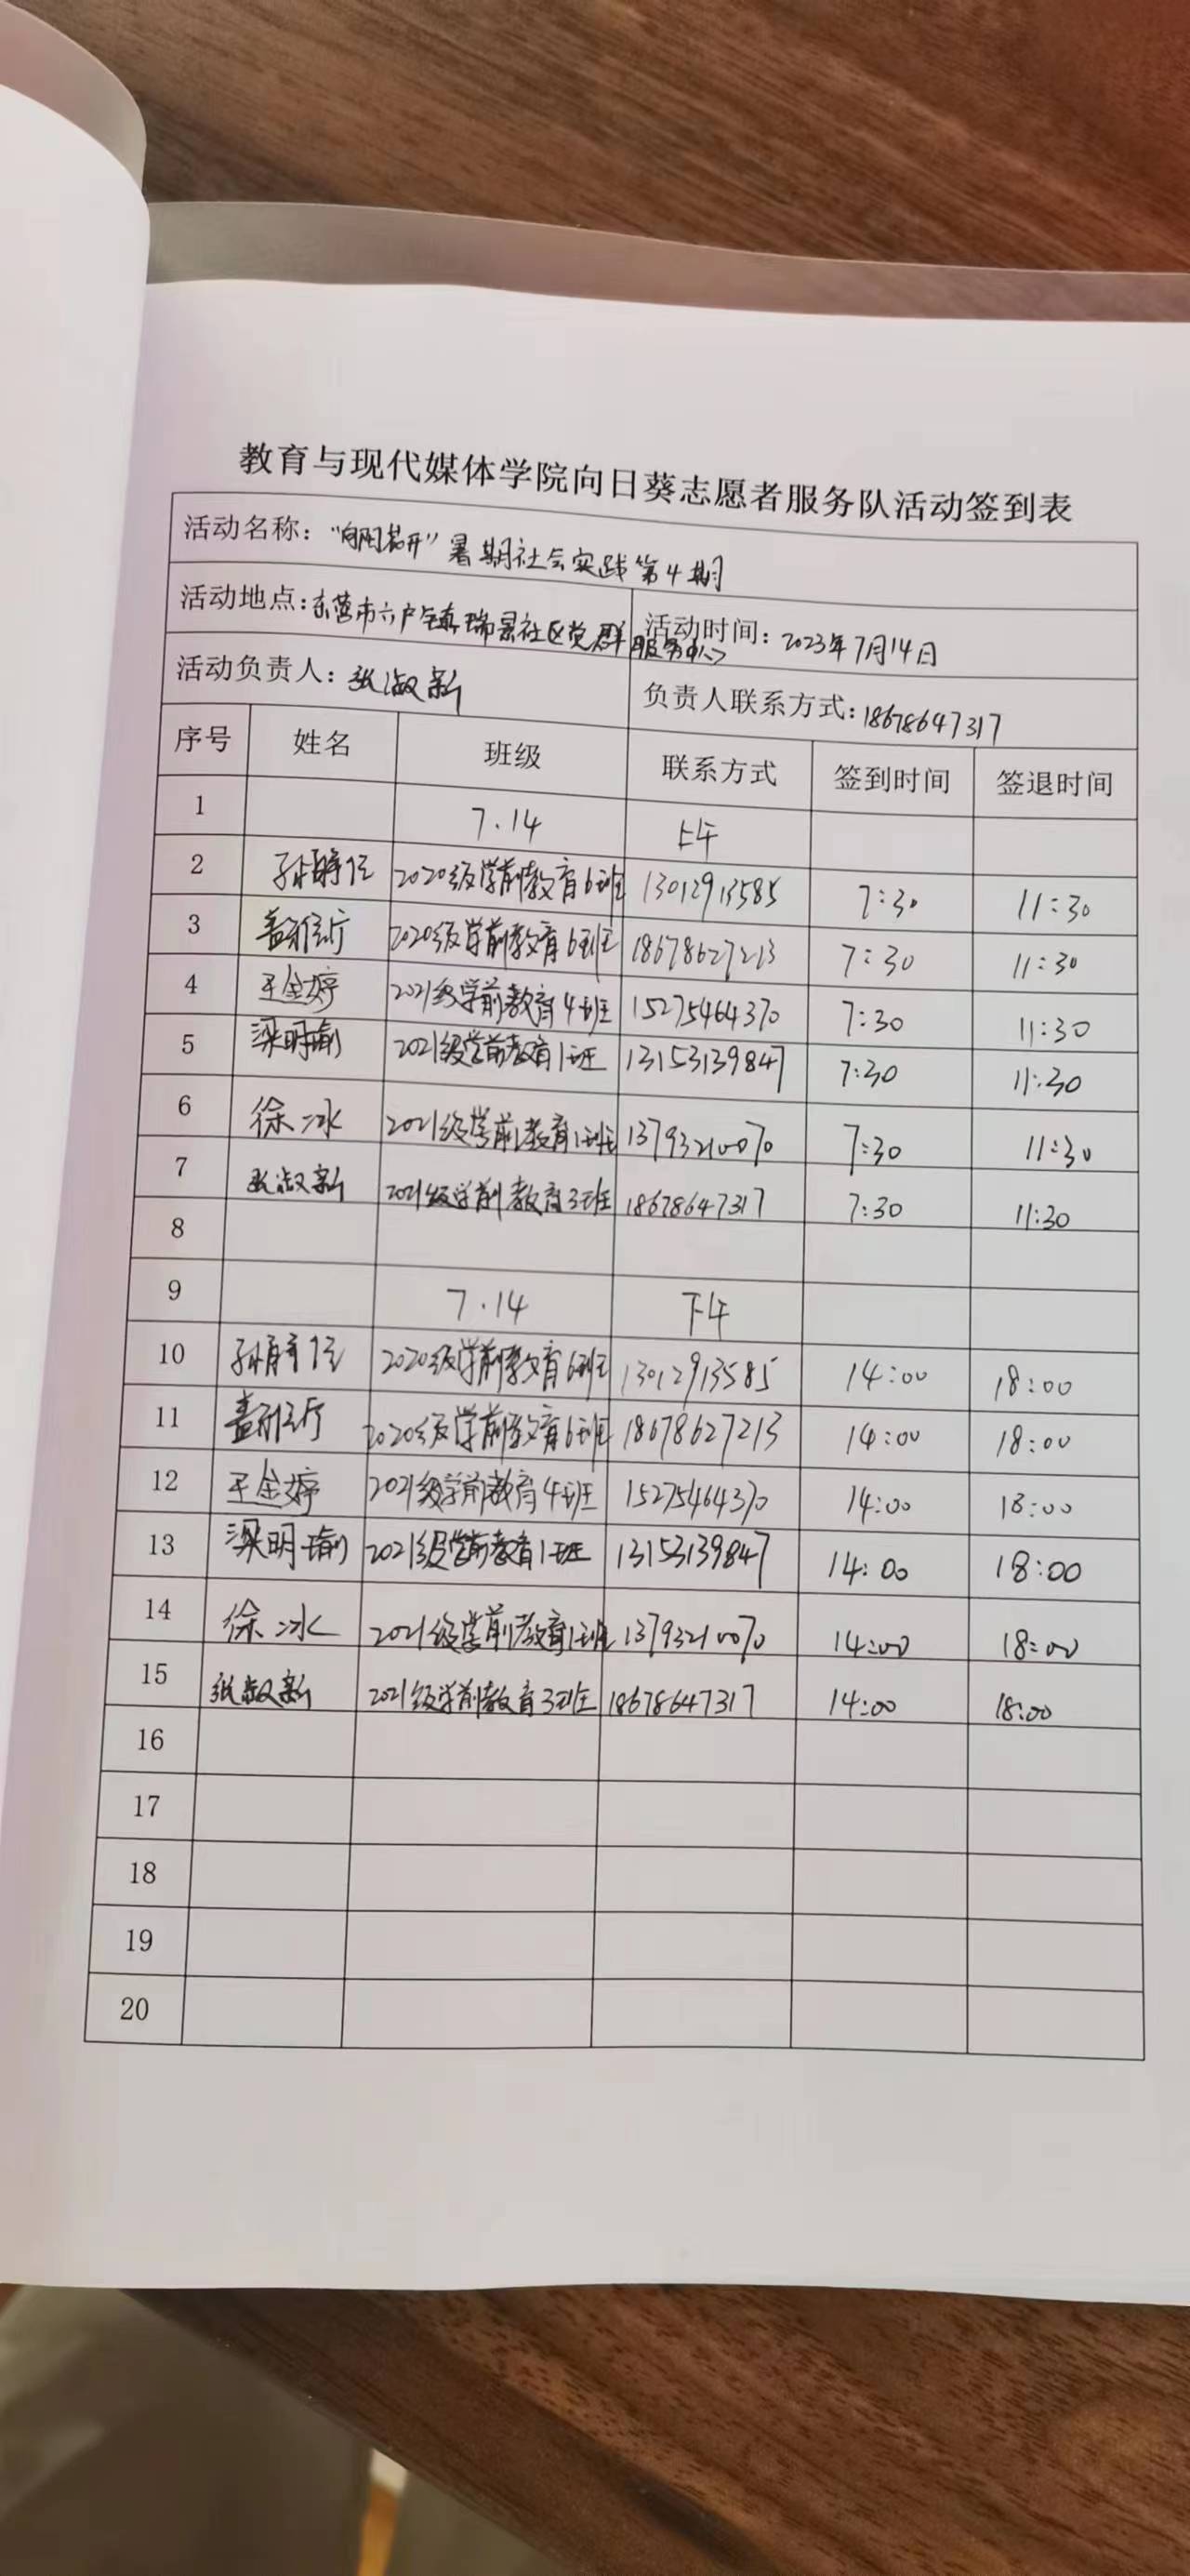 教育与现代媒体学院向日葵志愿者服务队活动签到表
活动名称：“向阳花开”暑期社会实践第4期
活动地点：东营市六户镇瑞景社区党群服务中心 活动时间：2023年7月14日
活动负责人：张淑新 负责人联系方式：18678647317
序号 姓名 班级 联系方式 签到时间 签退时间
1 7.14 上午
2 2020级学前教育6班 13012913585 7:30 11:30
3 2020级学前教育6班 18678627213 7:30 11:30
4 王金婷 2021级学前教育4班 15275464370 7:30 11:30
5 梁明瑜 2021级学前教育1班 13153139847 7:30 11:30
6 徐冰 2021级学前教育1班 13793210070 7:30 11:30
7 张淑新 2021级学前教育3班 18678647317 7:30 11:30
8
9 7.14 下午
10 2020级学前教育6班 13012913585 14:00 18:00
11 2020级学前教育6班 18678627213 14:00 18:00
12 王金婷 2021级学前教育4班 15275464370 14:00 18:00
13 梁明瑜 2021级学前教育1班 13153139847 14:00 18:00
14 徐冰 2021级学前教育1班 13793210070 14:00 18:00
15 张淑新 2021级学前教育3班 18678647317 14:00 18:00
16
17
18
19
20